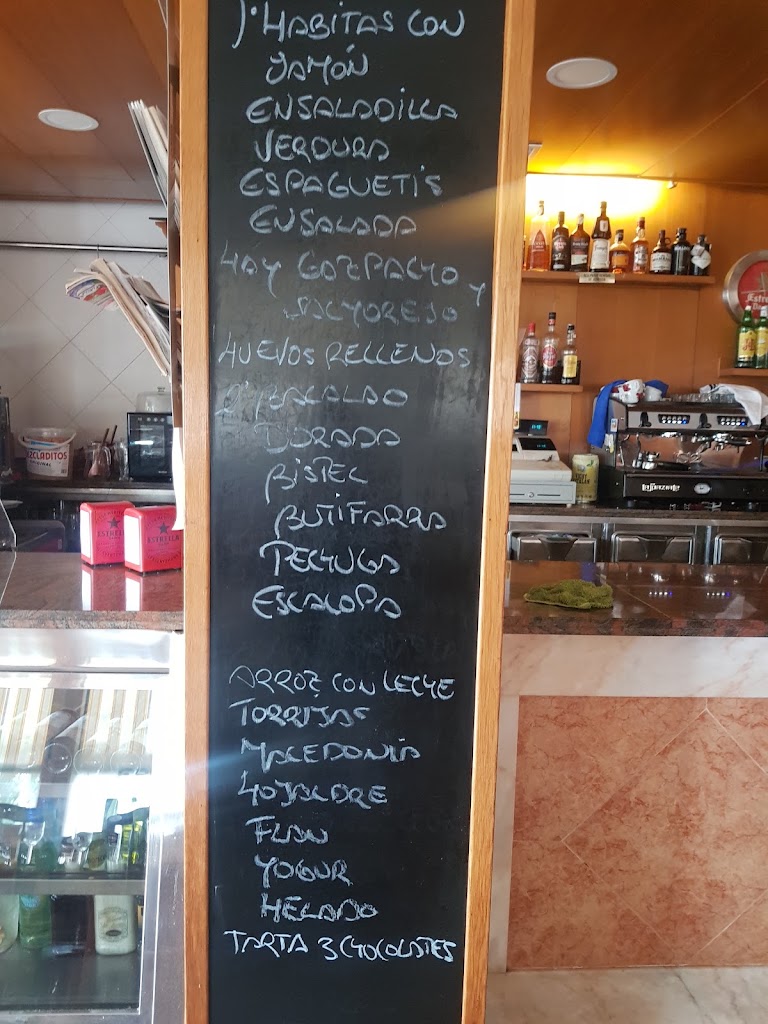 1º HABITAS CON
JAMÓN
ENSALADILLA
VERDURA
ESPAGUETIS
ENSALADA
HAY GAZPACHO Y
SALMOREJO
HUEVOS RELLENOS
2º BACALAO
DORADA
BISTEC
BUTIFARRA
PECHUGA
ESCALOPA
ARROZ CON LECHE
TORRIJAS
MACEDONIA
HOJALDRE
FLAN
YOGUR
HELADO
TARTA 3 CHOCOLATES
ESTRELLA
ESTRELLA